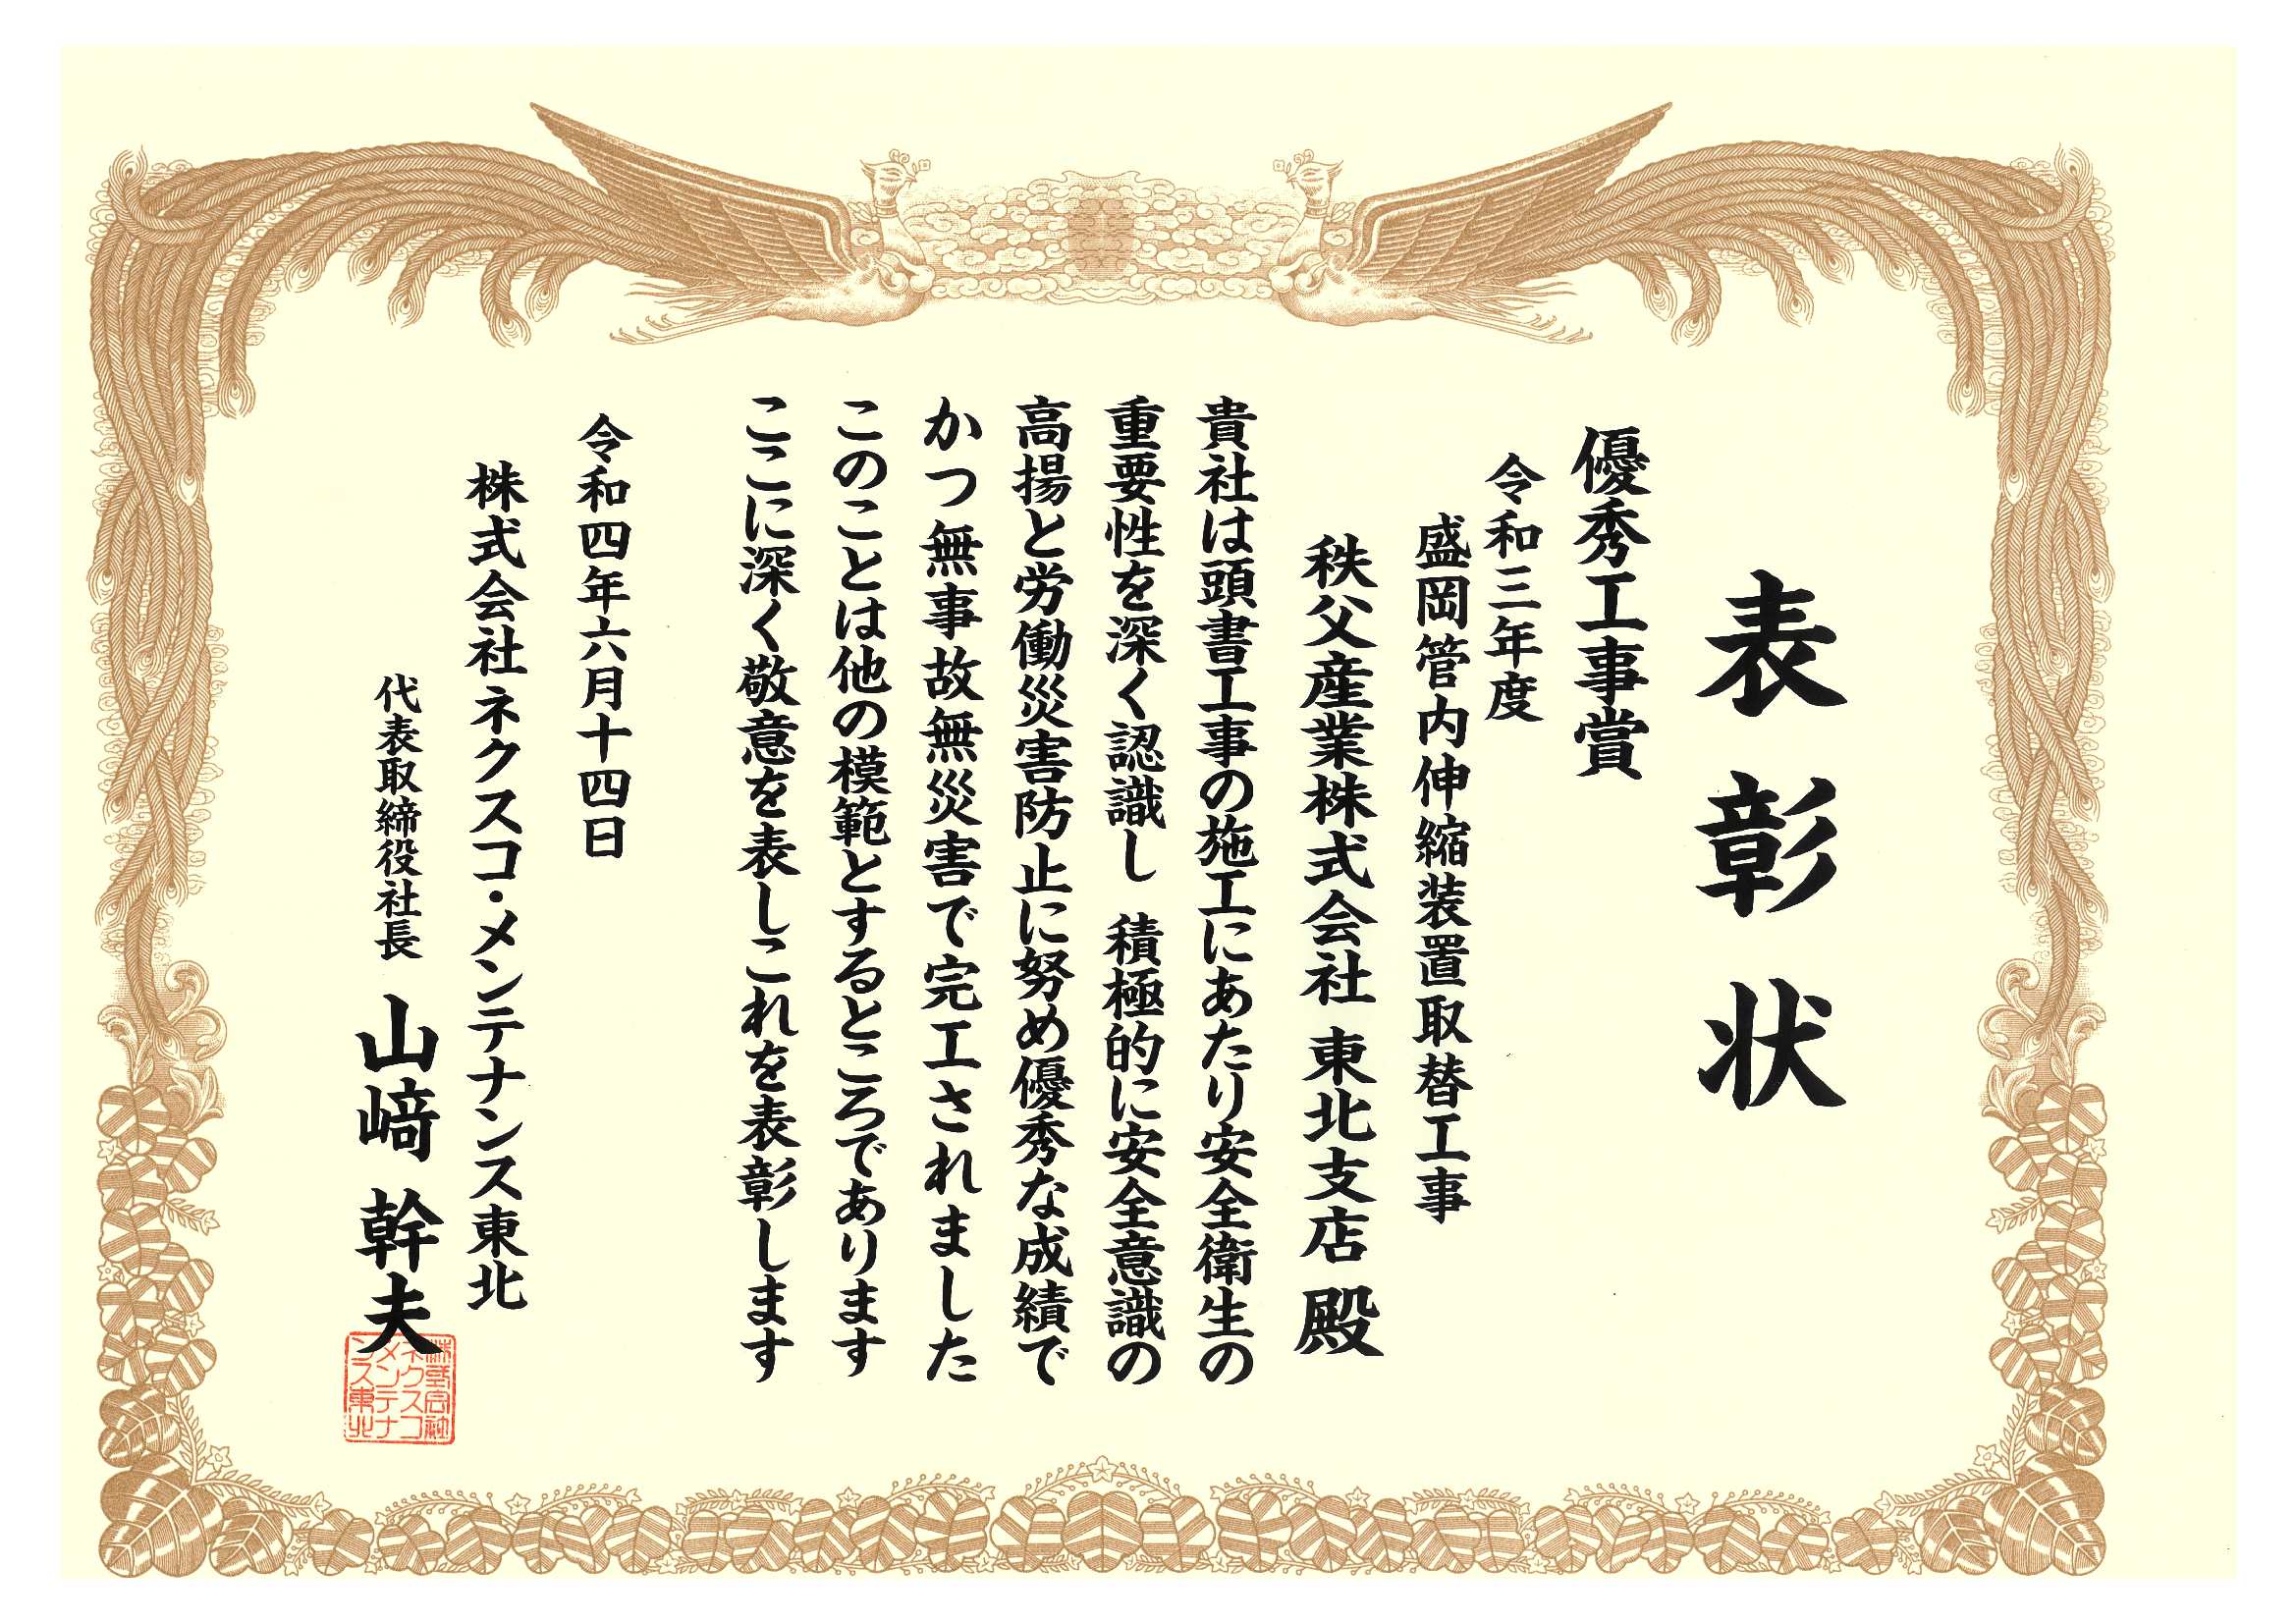 表彰状
優秀工事賞
令和三年度
盛岡管内伸縮装置取替工事
秩父産業株式会社 東北支店 殿
貴社は頭書工事の施工にあたり安全衛生の
重要性を深く認識し 積極的に安全意識の
高揚と労働災害防止に努め優秀な成績で
かつ無事故無災害で完工されました
このことは他の模範とするところであります
ここに深く敬意を表しこれを表彰します
令和四年六月十四日
株式会社ネクスコ・メンテナンス東北
代表取締役社長 山﨑 幹夫
株式会社
ネクスコ
メンテナ
ンス東北